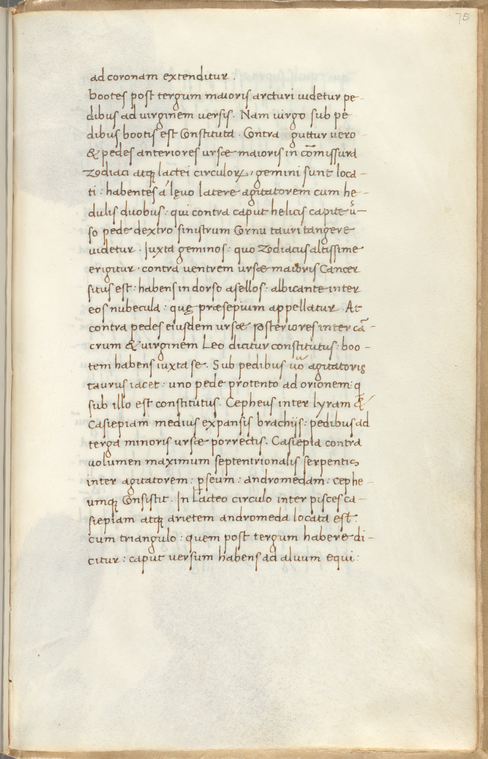 75
ad coronam extenditur.
bootes post tergum maioris arcturi uidetur pe-
dibus ad uirginem uersis. Nam uirgo sub pe
dibus bootis est Constituta. Contra guttur uero
& pedes anteriores ursæ maioris in cōmissura
zodiaci atq; lactei circuloꝝ, gemini sunt loca-
ti: habentes a lęuo latere agitatorem cum he-
dulis duobus: qui contra caput helicis capite ū-
so pede dextro sinistrum Cornu tauri tangere
uidetur. Juxta geminos: quo zodiacus altissime
erigitur contra uentrem ursæ maioris Cancer
situs est: habens in dorso asellos: albicante inter
eos nubecula: quę præsepium appellatur. At
contra pedes eiusdem ursæ posteriores inter cā-
crum & uirginem Leo dicitur constitutus: boo-
tem habens iuxta se. Sub pedibus uō agitatoris
taurus iacet: uno pede protento ad orionem: q
sub illo est constitutus. Cepheus inter lyram &
Casiepiam medius expansis brachijs: pedibus ad
terga minoris ursæ porrectis. Casiepia contra
uolumen maximum septentrionalis serpentis
inter agitatorem: pseum: andromedam: cephe
umq; Consistit. In Lacteo circulo inter pisces ca-
siepiam atq; arietem andromeda locata est:
cum triangulo: quem post tergum habere di-
citur: caput uersum habens ad aluum equi: